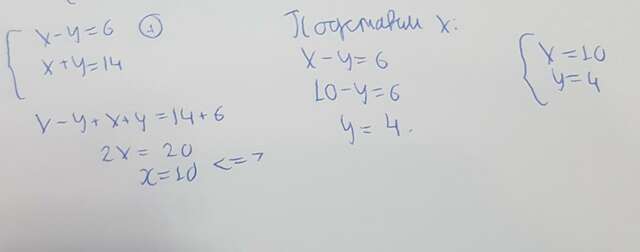 x-y=6 ①
x+y=14
x-y+x+y=14+6
2x=20
x=10 <=>
Подставим x:
x-y=6
10-y=6
y=4.
x=10
y=4